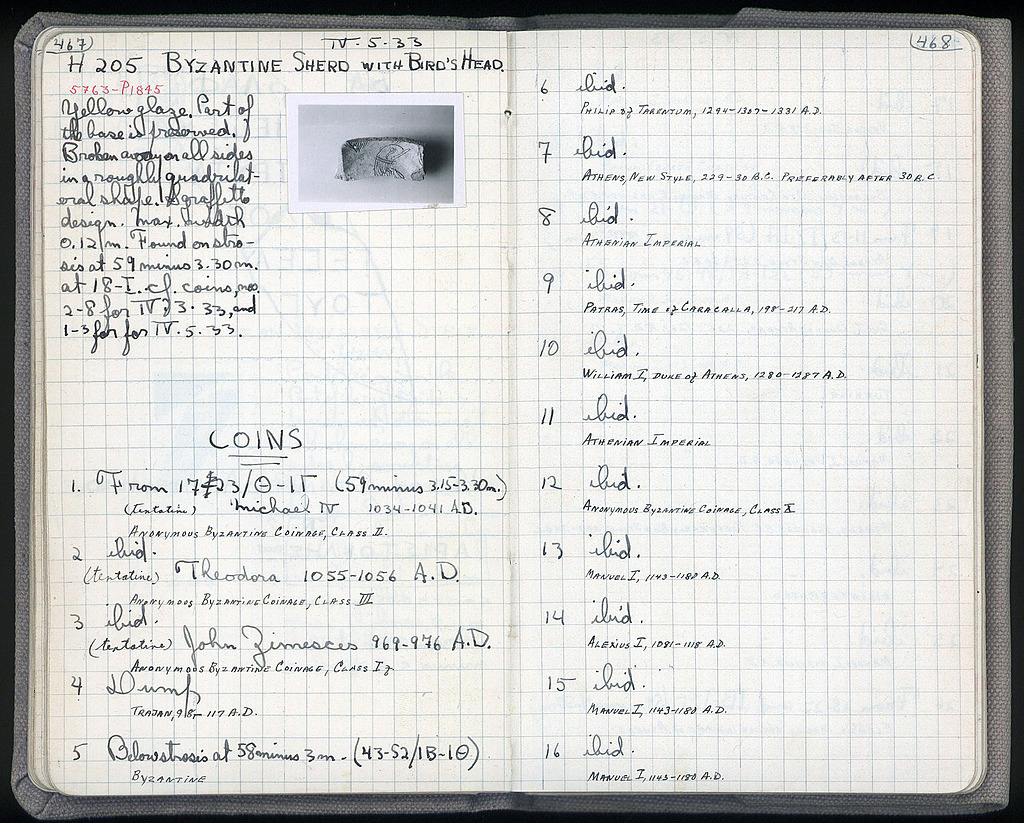 467
IV. 5. 33
H 205 BYZANTINE SHERD WITH BIRD'S HEAD.
5763-P1845
Yellow glaze. Part of
the base is preserved.
Broken away on all sides
in a roughly quadrilat-
eral shape. Sgraffitto
design. Max. width
0.12 m. Found on stro-
sis at 59 minus 3.30 m.
at 18-I. cf. coins, nos.
2-8 for IV. 3. 33, and
1-3 for for IV. 5. 33.
COINS
1. From 17 23/Θ-ΙΓ (59 minus 3.15-3.30m.)
(tentative) Michael IV 1034-1041 A.D.
ANONYMOUS BYZANTINE COINAGE, CLASS II.
2 ibid.
(tentative) Theodora 1055-1056 A.D.
ANONYMOUS BYZANTINE COINAGE, CLASS III
3 ibid.
(tentative) John Zimesces 969-976 A.D.
ANONYMOUS BYZANTINE COINAGE, CLASS I
4 Dump
TRAJAN, 98-117 A.D.
5 Below strosis at 58 minus 3m. (43-52/ΙΒ-ΙΘ)
BYZANTINE
468
6 ibid.
PHILIP of TARENTUM, 1294-1307-1331 A.D.
7 ibid.
ATHENS, NEW STYLE, 229-30 B.C. PREFERABLY AFTER 30 B.C.
8 ibid.
ATHENIAN IMPERIAL
9 ibid.
PATRAS, TIME of CARACALLA, 198-217 A.D.
10 ibid.
WILLIAM I, DUKE of ATHENS, 1280-1287 A.D.
11 ibid.
ATHENIAN IMPERIAL
12 ibid.
ANONYMOUS BYZANTINE COINAGE, CLASS
13 ibid.
MANUEL I, 1143-1180 A.D.
14 ibid.
ALEXIUS I, 1081-1118 A.D.
15 ibid.
MANUEL I, 1143-1180 A.D.
16 ibid.
MANUEL I, 1143-1180 A.D.